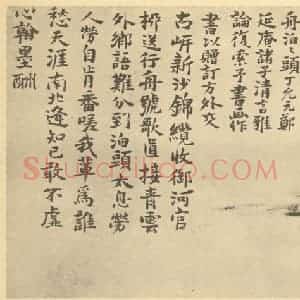 舟泊泊頭丁允元鄭
延庵諸子清古雅
論復索予書畫作
書以贈訂方外交
古岍新沙錦纜收御河官
柳送行舟號歌直接青雲
外鄉語難分到泊頭太息勞
人勞自肯番嗟我輩為誰
愁天涯南北遼知己敢不虛
心翰墨酬